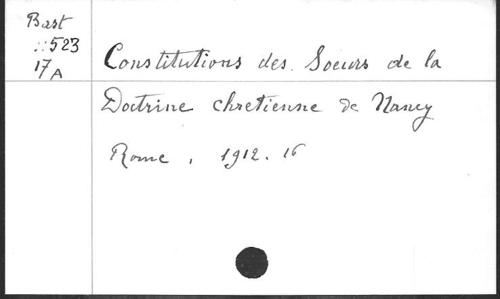 Bast
::523
17A
Constitutions des Soeurs de la
Doctrine chretienne de Nancy
Rome, 1912. 16